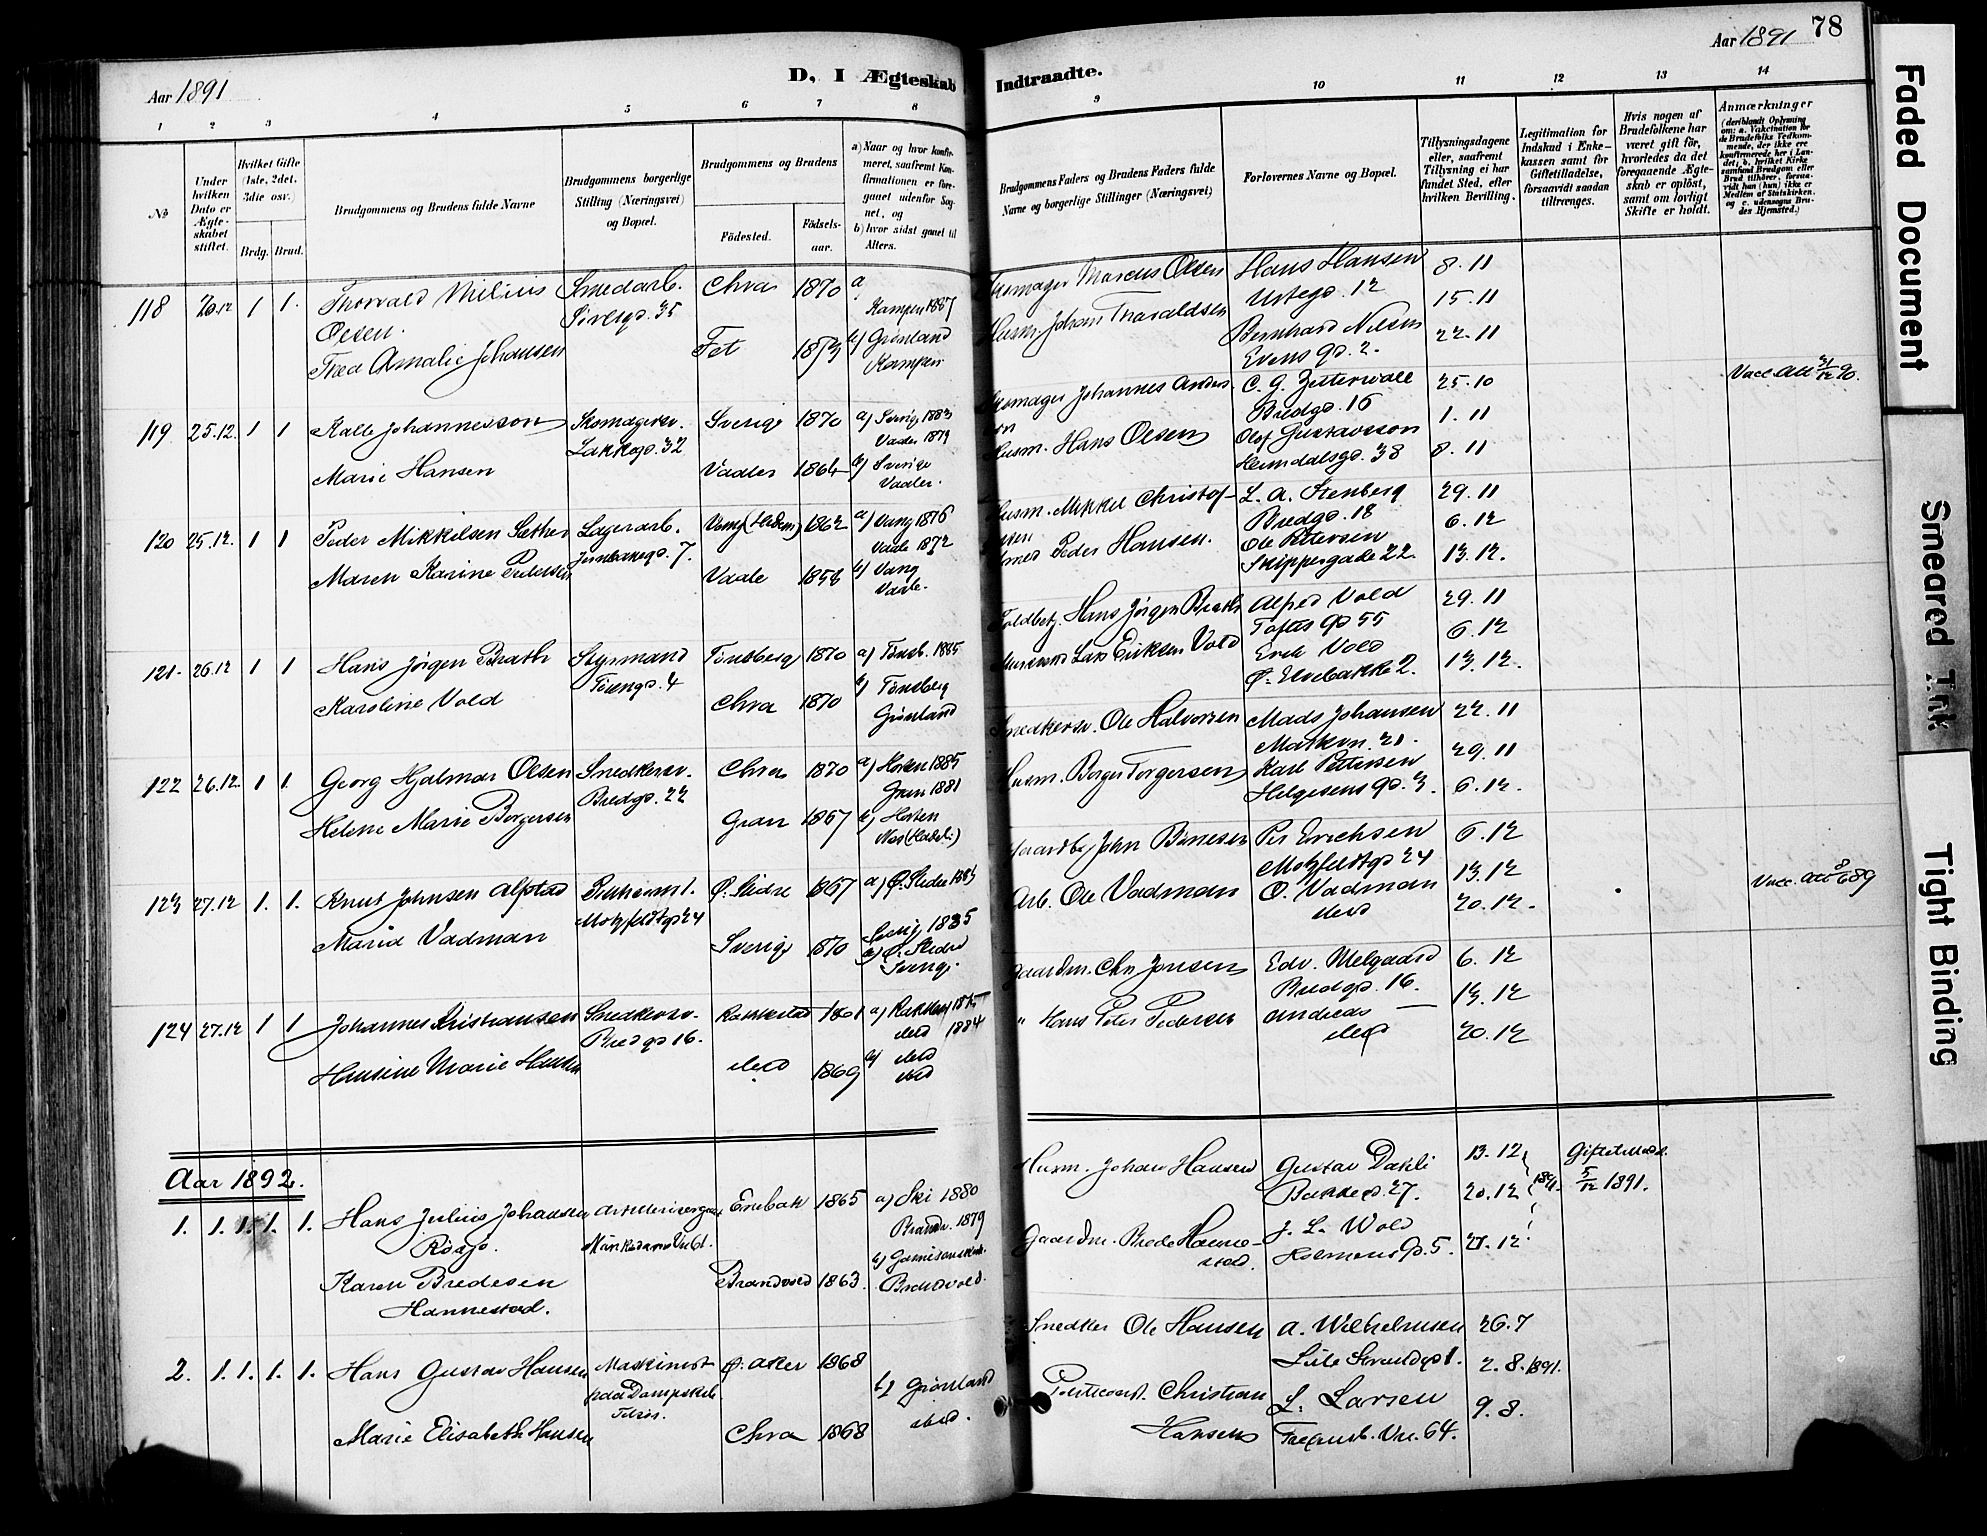 78
Aar 1891
D, I Ægteskab Indtraadte.
Aar 1891
1 2 3 4 5 6 7 8 9 10 11 12 13 14
No
Under hvilken Dato er Ægteskabet stiftet.
Hvilket Gifte (1ste, 2det, 3die osv.)
Brdg. Brud.
Brudgommens og Brudens fulde Navne
Brudgommens borgerlige Stilling (Næringsvei) og Bopæl.
Brudgommens og Brudens
Fødested.
Fødselsaar.
a) Naar og hvor konfirmeret, saafremt Konfirmationen er foregaaet udenfor Sognet, og
b) hvor sidst gaaet til Alters.
Brudgommens Faders og Brudens Faders fulde Navne og borgerlige Stillinger (Næringsvei)
Forlovernes Navne og Bopæl.
Tillysningsdagene eller, saafremt Tillysning ei har fundet Sted, efter hvilken Bevilling.
Legitimation for Indskud i Enkekassen samt for Giftetilladelse, forsaavidt saadan tiltrænges.
Hvis nogen af Brudefolkene har været gift før, hvorledes da det foregaaende Ægteskab er opløst, samt om lovligt Skifte er holdt.
Anmærkninger
(deriblandt Oplysning om: a. Vakcination for de Brudefolks Vedkommende, der ikke ere konfirmerede her i Landet; b. hvilket Kirkesamfund Brudgom eller Brud tilhører, forsaavidt han (hun) ikke er Medlem af Statskirken, og c. udensogns Brudes Hjemsted.)
118 26.12 1 1. Thorvald Milius Olsen. Smedarb. Chra 1870 a Kampen 1887 Marcus Olsen Hans Hansen 8.11
Urtegd. 12 15.11
Thea Amalie Johansen Fet 1873 b) Grønland Kampen Husm. Johan Thoraldsen Bernhard Nilsen 22.11
Evens gd. 2.
119 25.12. 1 1 Kalle Johannesson Skomagersv. Lakkegd. 32 Sverige 1870 a) Sverige 1883 Vaaler 1879 Johannes Anders- C. G. Zetterwall 25.10 Vacc. Att 31/12 90.
Bredgd. 16 1.11
Marie Hansen Vaaler 1864 b) Sverige Vaaler. Husm. Hans Olsen Olof Gustavsson 8.11
Heimdalsgd. 38
120 25.12. 1 1 Peder Mikkelsen Sæther Lagerarb. Jernbanegd. 7. Vang (Hedem) 1862 a) Vang 1876 Vaale 1872 Husm. Mikkel Christof- L. A. Stenberg 29.11
Bredgd. 18 6.12
Maren Karine Pedersen Vaale 1858 b) Vang Vaale. Peder Hansen. Ole Pettersen 13.12.
Skippergade 22.
121. 26.12 1 1 Hans Jørgen Brath Styrmand Tøiengd. 4 Tønsberg 1870 a) Tønsb. 1885 Toldbetj. Hans Jørgen Brath Alfred Vold 29.11
Toftes gd 55 6.12
Karoline Vold Chra 1870 b) Tønsberg Grønland Lars Eriksen Vold Erik Vold 13.12.
Ø. Elvebakke 2.
122 26.12. 1 1. Georg Hjalmar Olsen Snedkersv. Bredgd. 22 Chra 1870 a) Horten 1885 Gran 1881 Snedkersv. Ole Halvorsen Mads Johansen 22.11
29.11
Helene Marie Borgersen Gran 1867 b) Horten Husm. Borger Torgersen Karl Pettersen 6.12.
Helgesens gd. 3.
123 27.12 1. 1. Knut Johnsen Alfstad Motzfeldtgd 24 Ø. Slidre 1867 a) Ø. Slidre 1883 Gaardbr. John Per Erichsen 6.12
Motzfeldtgd 24 13.12
Maria Vadman Sverige 1870 Sverig 1885 b) Ø. Slidre Sverige. Arb. Ole Vadman O. Vadman 20.12. Vacc. Att 8/6 89
ibid
124 27.12 1 1 Johannes Kristiansen Snedkersv. Bredgd 16. Rakkestad 1861 a) Rakkest 1875 ibid 1884 Gaardm. Chr Jensen Edv. Melgaard 6.12
Bredgd. 16. 13.12
Hansine Marie Hansen ibid 1869 b) ibid ibid " Hans Peter Pedersen Andreas — 20.12
ibid
Aar 1892.
1. 1.1. 1. 1. Hans Julius Johansen Enebak 1865 a) Ski 1880 Husm. Johan Hansen Gustav Dahli 13.12 Giftetillad.
Brandv. 1879 Bakkegd. 27. 20.12 1891. 5/12 1891.
Karen Bredesen Hannestad. Brandvold 1863. b) Garnisonskirk. Brandvold. Gaardm. Brede Hannestad. J. L. Wold 27.12
Holmens gd. 5.
2. 1.1. 1. 1. Hans Gustav Hansen Maskinist paa Dampskib Ø. Aker 1868 Snedker Ole Hansen A. Wilhelmsen 26.7
2.8. 1891.
Marie Elisabeth Hansen Chra 1868 b) Grønland ibid. Christian Hansen L. Larsen 9.8.
64.
Faded Document
Smeared Ink
Tight Binding